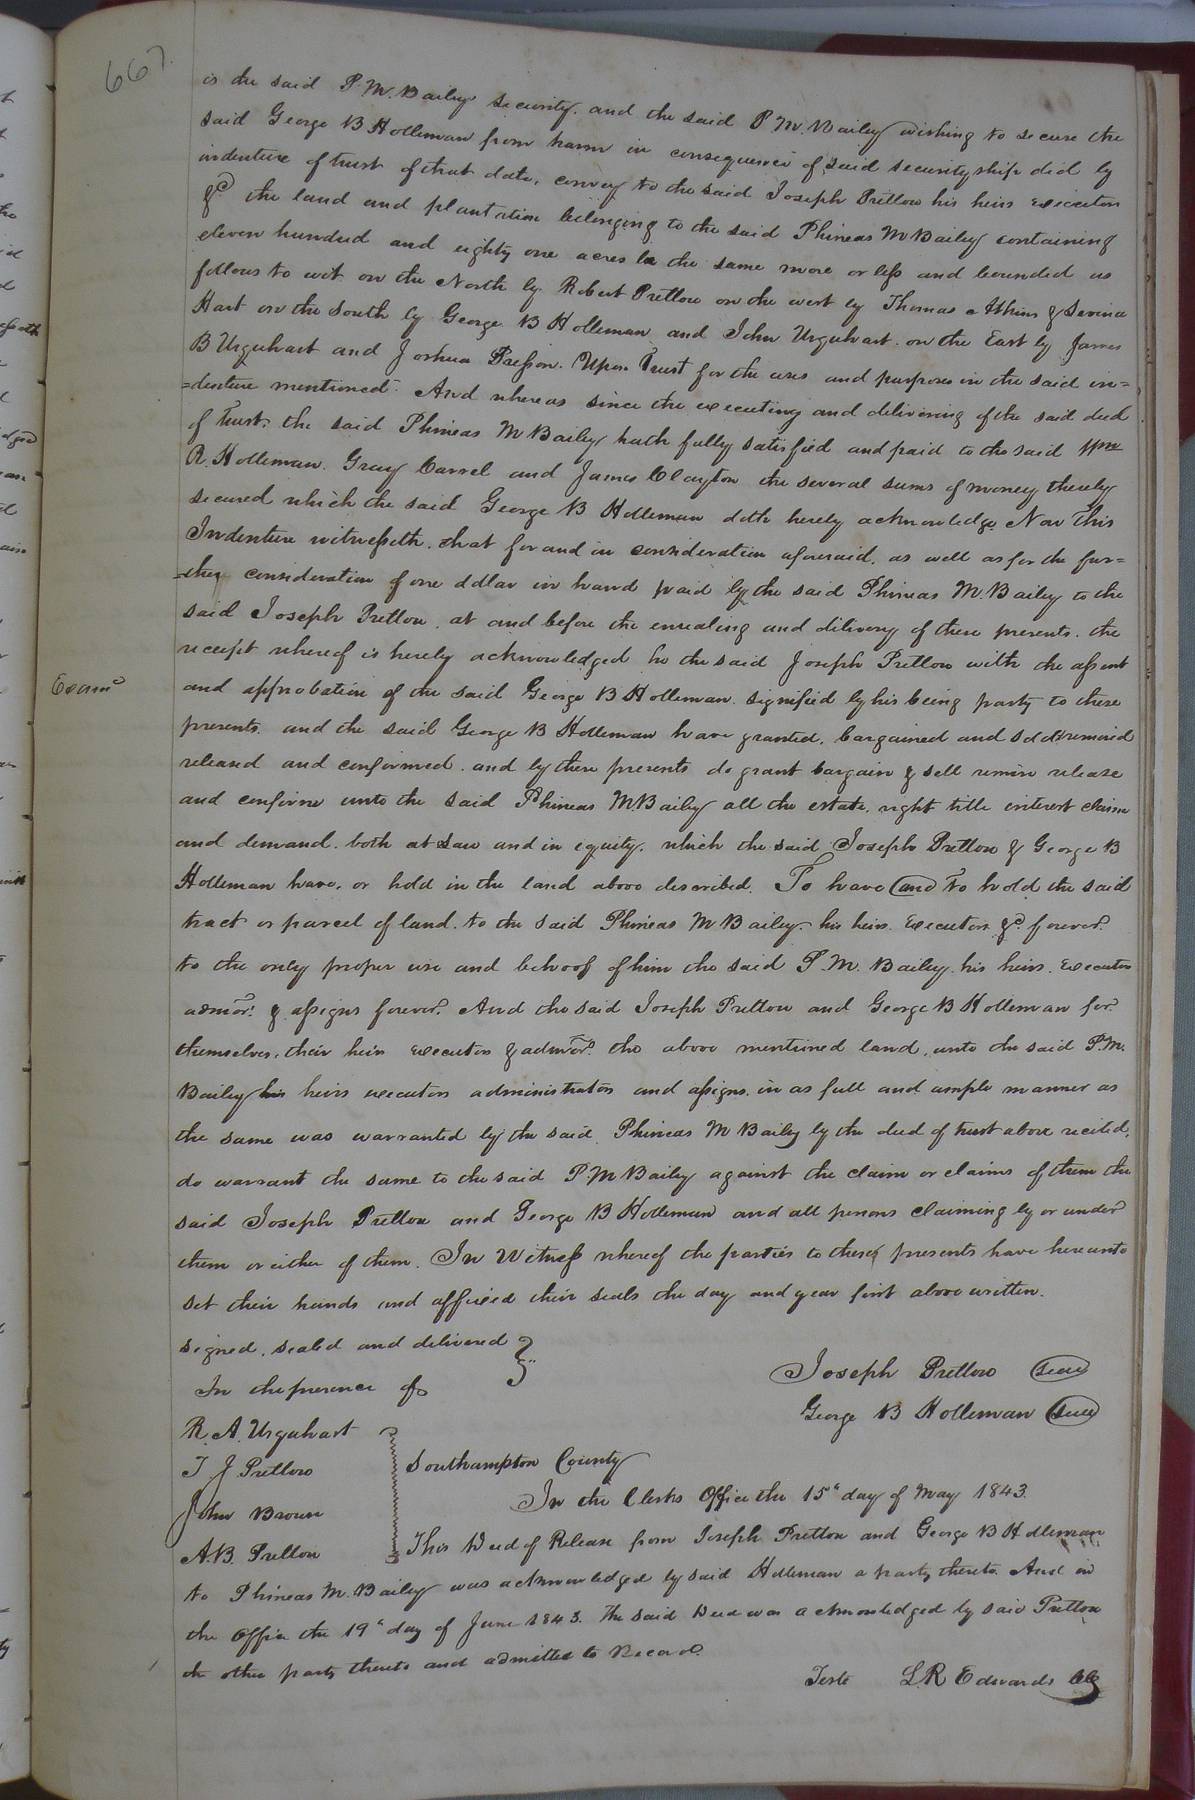 667.
is the said P. M. Bailey security. and the said P. M. Bailey wishing to secure the
said George B Holleman from harm in consequence of said securityship did by
indenture of trust of that date, convey to the said Joseph Pretlow his heirs executors
&c the land and plantation belonging to the said Phineas M Bailey containing
eleven hundred and eighty one acres be the same more or less and bounded as
follows to wit on the North by Robert Pretlow on the west by Thomas Atkins &
Hart on the South by George B Holleman and John Urquhart. on the East by James
B Urquhart and Joshua Presson. Upon Trust for the uses and purposes in the said in=
=denture mentioned. And whereas since the executing and delivering of the said deed
of Trust. the said Phineas M Bailey hath fully satisfied and paid to the said Wm
R. Holleman. Gray Carrel and James Clayton the several sums of money thereby
secured which the said George B Holleman doth hereby acknowledge Now This
Indenture witnesseth. that for and in consideration aforesaid. as well as for the fur=
=ther consideration of one dollar in hand paid by the said Phineas M. Bailey to the
said Joseph Pretlow. at and before the ensealing and delivery of these presents. the
receipt whereof is hereby acknowledged he the said Joseph Pretlow with the assent
Examd
and approbation of the said George B Holleman. signified by his being party to these
presents. and the said George B Holleman have granted. bargained and sold remised
released and confirmed. and by these presents do grant bargain & sell remise release
and confirm unto the said Phineas M Bailey all the estate. right title interest claim
and demand. both at Law and in equity. which the said Joseph Pretlow & George B
Holleman have. or hold in the land above described. To have and To hold the said
tract or parcel of land. to the said Phineas M Bailey. his heirs. Executors &c. forever.
to the only proper use and behoof of him the said P. M. Bailey. his heirs. Executors
admors. & assigns forever. And the said Joseph Pretlow and George B Holleman for
themselves, their heirs executors & admors. the above mentioned land. unto the said P. M.
Bailey his heirs executors administrators and assigns. in as full and ample manner as
the same was warranted by the said. Phineas M Bailey by the deed of trust above recited,
do warrant the same to the said P M Bailey against the claim or claims of them the
said Joseph Pretlow and George B Holleman and all persons claiming by or under
them or either of them. In Witness whereof the parties to these presents have hereunto
set their hands and affixed their seals the day and year first above written.
signed. sealed and delivered
In the presence of
Joseph Pretlow seal
George B Holleman seal
R. A. Urquhart
T J Pretlow
John Brown
A. B. Pretlow
Southampton County
In the Clerks Office the 15th day of May 1843.
This Deed of Release from Joseph Pretlow and George B Holleman
to Phineas M. Bailey was acknowledged by said Holleman a party thereto. And in
the Office the 19th day of June 1843. The said Deed was acknowledged by said Pretlow
the other party thereto and admitted to Record.
Teste L. R. Edwards